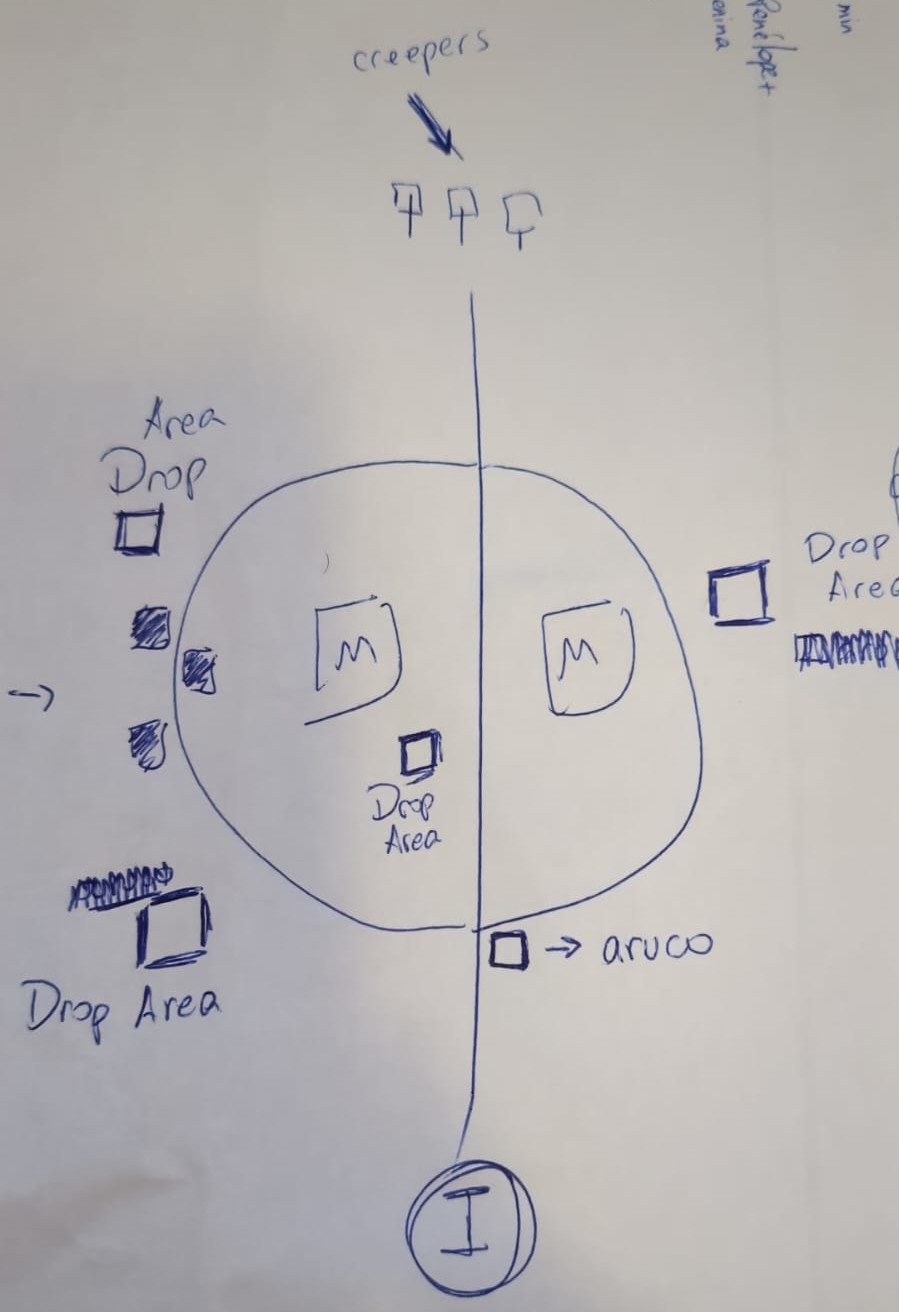 min
Penélope+
enina
creepers
Area
Drop
Drop
Area
M
M
Drop
Area
aruco
Drop Area
I